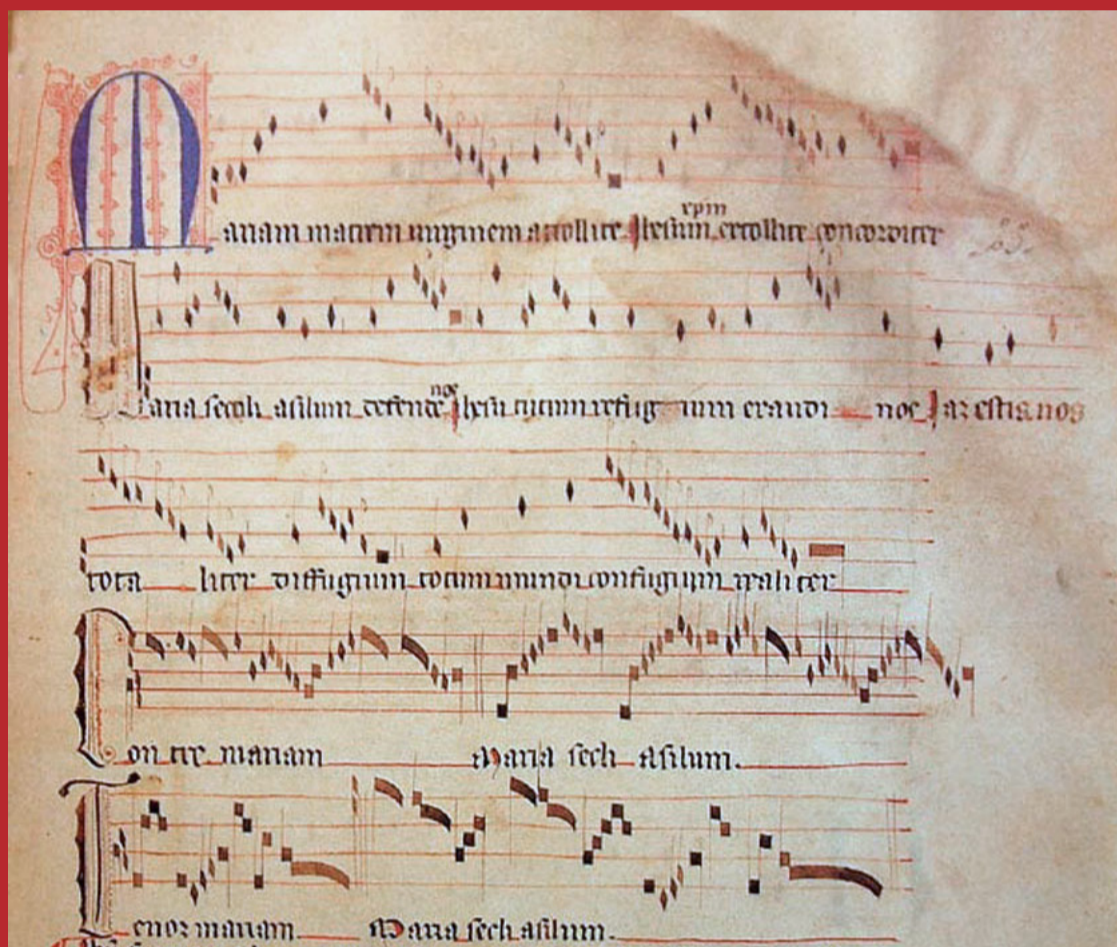 Mariam matrem uirginem attollite Ihesum xpm extollite concorditer
Maria seculi asilum defende nos Ihesu tutum refugium exaudi nos Iam estis nos
totaliter diffugium totum mundi confugium realiter
Contre mariam Maria secli asilum.
Tenor mariam Maria secli asilum.